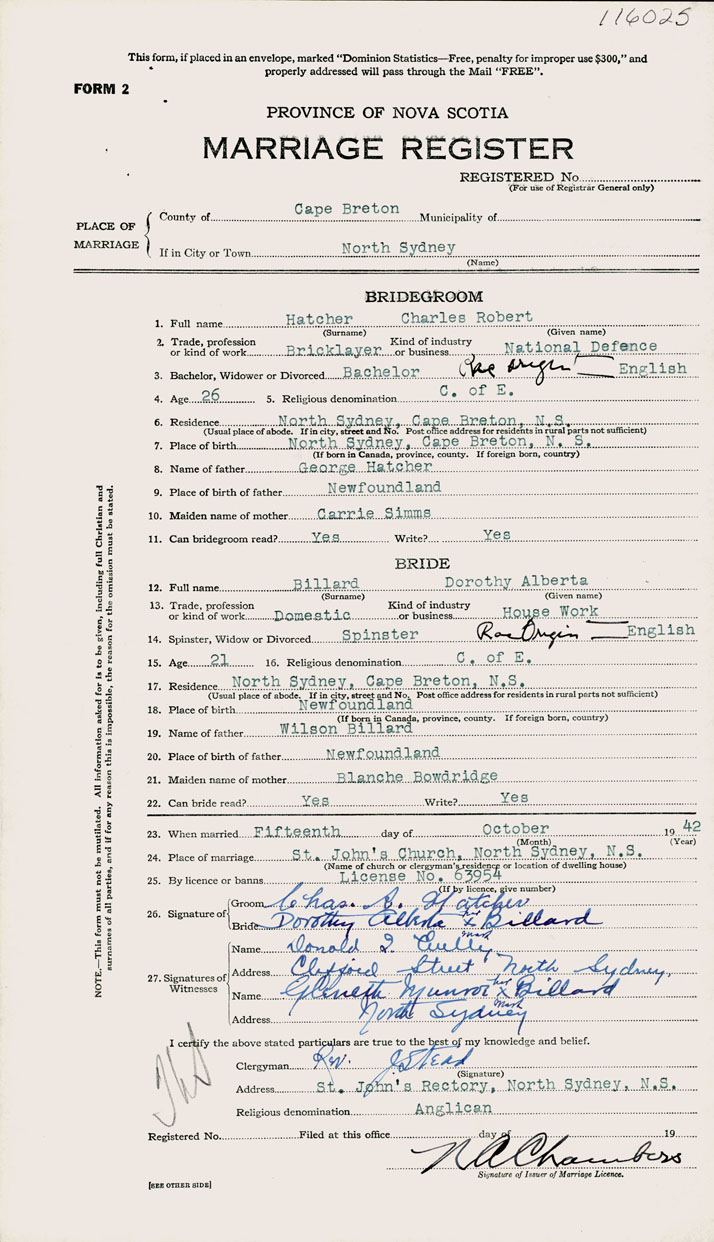 116025
This form, if placed in an envelope, marked "Dominion Statistics—Free, penalty for improper use $300," and
properly addressed will pass through the Mail "FREE".
FORM 2
PROVINCE OF NOVA SCOTIA
MARRIAGE REGISTER
REGISTERED No.
(For use of Registrar General only)
PLACE OF MARRIAGE
County of Cape Breton Municipality of
If in City or Town North Sydney
(Name)
BRIDEGROOM
1. Full name Hatcher Charles Robert
(Surname) (Given name)
2. Trade, profession or kind of work Bricklayer Kind of industry or business National Defence
3. Bachelor, Widower or Divorced Bachelor Rac Origin English
4. Age 26 5. Religious denomination C. of E.
6. Residence North Sydney, Cape Breton, N.S.
(Usual place of abode. If in city, street and No. Post office address for residents in rural parts not sufficient)
7. Place of birth North Sydney, Cape Breton, N. S.
(If born in Canada, province, county. If foreign born, country)
8. Name of father George Hatcher
9. Place of birth of father Newfoundland
10. Maiden name of mother Carrie Simms
11. Can bridegroom read? Yes Write? Yes
BRIDE
12. Full name Billard Dorothy Alberta
(Surname) (Given name)
13. Trade, profession or kind of work Domestic Kind of industry or business House Work
14. Spinster, Widow or Divorced Spinster Rac Origin English
15. Age 21 16. Religious denomination C. of E.
17. Residence North Sydney, Cape Breton, N.S.
(Usual place of abode. If in city, street and No. Post office address for residents in rural parts not sufficient)
18. Place of birth Newfoundland
(If born in Canada, province, county. If foreign born, country)
19. Name of father Wilson Billard
20. Place of birth of father Newfoundland
21. Maiden name of mother Blanche Bowdridge
22. Can bride read? Yes Write? Yes
23. When married Fifteenth day of October 19 42
(Month) (Year)
24. Place of marriage St. John's Church, North Sydney, N.S.
(Name of church or clergyman's residence or location of dwelling house)
25. By licence or banns License No. 63954
(If by licence, give number)
26. Signature of
Groom Chas. R. Hatcher
Bride Dorothy Alberta her x mark Billard
27. Signatures of Witnesses
Name Donald
Address Clifford Street North Sydney,
Name Munroe her x mark Billard
Address North Sydney
I certify the above stated particulars are true to the best of my knowledge and belief.
Clergyman Rev. J. Stead
(Signature)
Address St. John's Rectory, North Sydney, N.S.
Religious denomination Anglican
Registered No. Filed at this office day of 19
N A Chambers
Signature of Issuer of Marriage Licence.
[SEE OTHER SIDE]
NOTE.—This form must not be mutilated. All information asked for is to be given, including full Christian and
surnames of all parties, and if for any reason this is impossible, the reason for the omission must be stated.